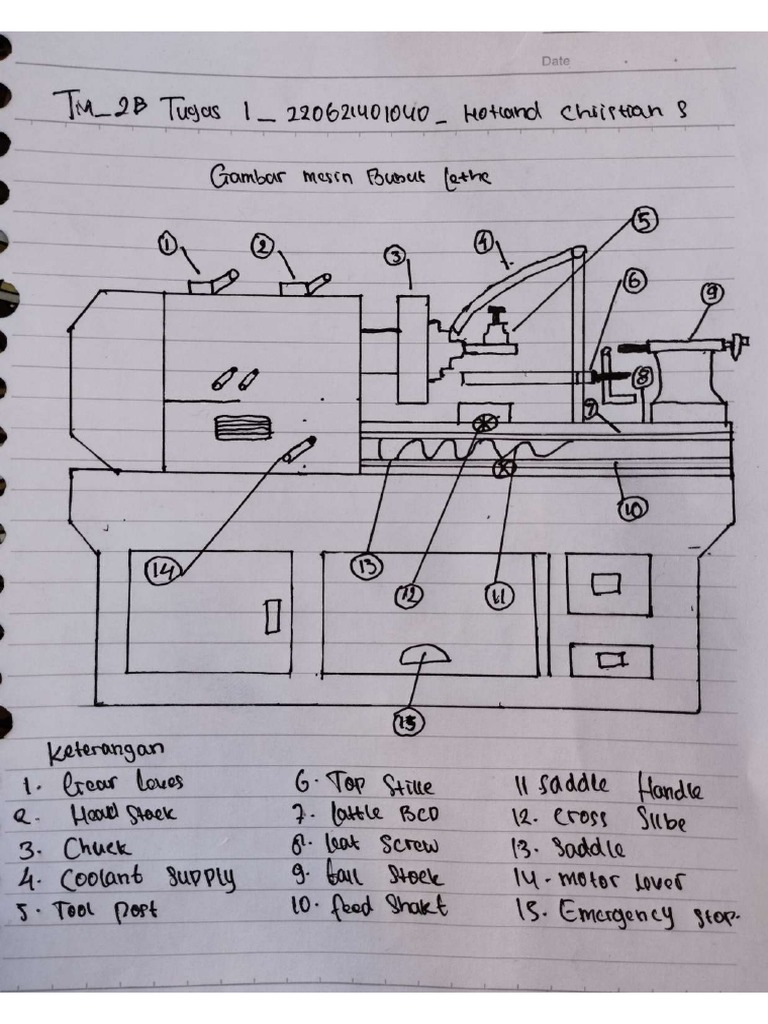 Date
TM_2B Tugas 1_ 220621401040_ Hotland Christian S
Gambar mesin Bubut Lethe
1 2 3 4 5
6 9
8
7
10
14 13 12 11
15
Keterangan
1. Gear Loves 6. Top Stille 11 Saddle Handle
2. Head Stock 7. Lattle BED 12. Cross Slibe
3. Chuck 8. Leat Screw 13. Saddle
4. Coolant Supply 9. tail Stock 14. motor Lover
5. Tool Post 10. feed Shakt 15. Emergency stop.